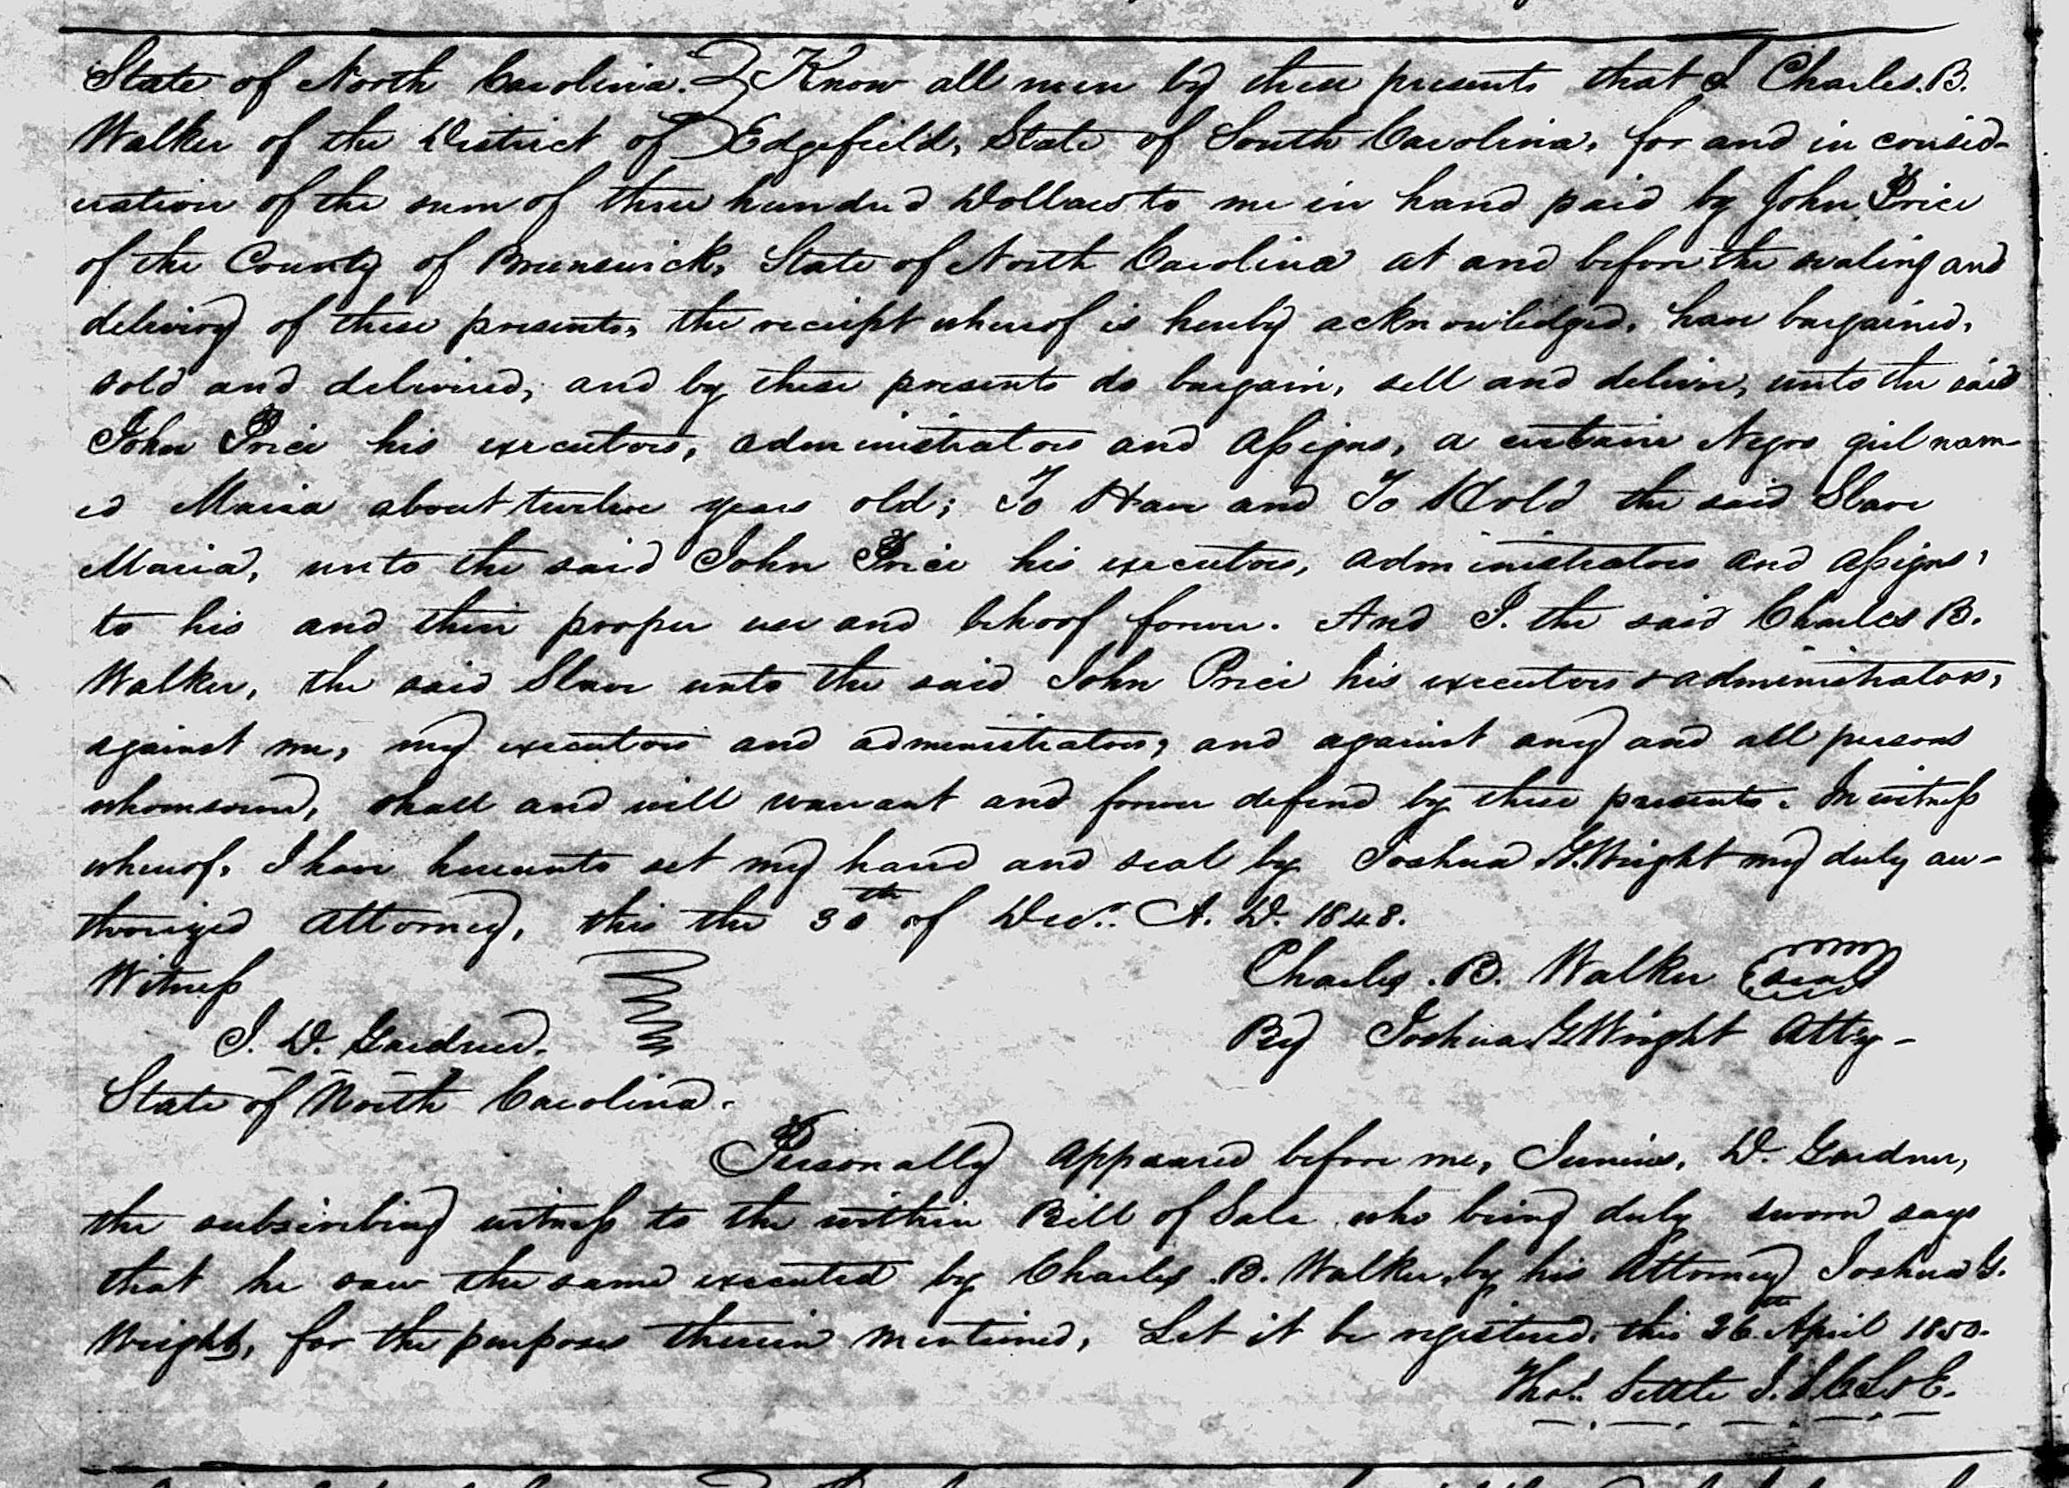 State of North Carolina. } Know all men by these presents that I Charles. B.
Walker of the District of } Edgefield, State of South Carolina, for and in consid-
eration of the sum of three hundred Dollars to me in hand paid by John Price
of the County of Brunswick, State of North Carolina at and before the sealing and
delivery of these presents, the receipt whereof is hereby acknowledged, have bargained,
sold and delivered, and by these presents do bargain, sell and deliver, unto the said
John Price his executors, administrators and assigns, a certain Negro girl nam-
ed Maria about twelve years old; To Have and To Hold the said Slave
Maria, unto the said John Price his executors, administrators and assigns,
to his and their proper use and behoof forever. And I. the said Charles B.
Walker, the said Slave unto the said John Price his executors & administrators,
against me, my executors and administrators, and against any and all persons
whomsoever, shall and will warrant and forever defend by these presents. In witness
whereof, I have hereunto set my hand and seal by Joshua G. Wright my duly au-
thorized attorney, this the 30th of Decr. A. D. 1848.
Witness Charles. B. Walker (seal)
J. D. Gardner. By Joshua G Wright Atty-
State of North Carolina.
Personally appeared before me, Junius. D. Gardner,
the subscribing witness to the within Bill of Sale who being duly sworn says
that he saw the same executed by Charles. B. Walker, by his Attorney Joshua G.
Wright, for the purposes therein mentioned, Let it be registered, this 26th April 1850.
Thos. Settle J. S. C. L & E.